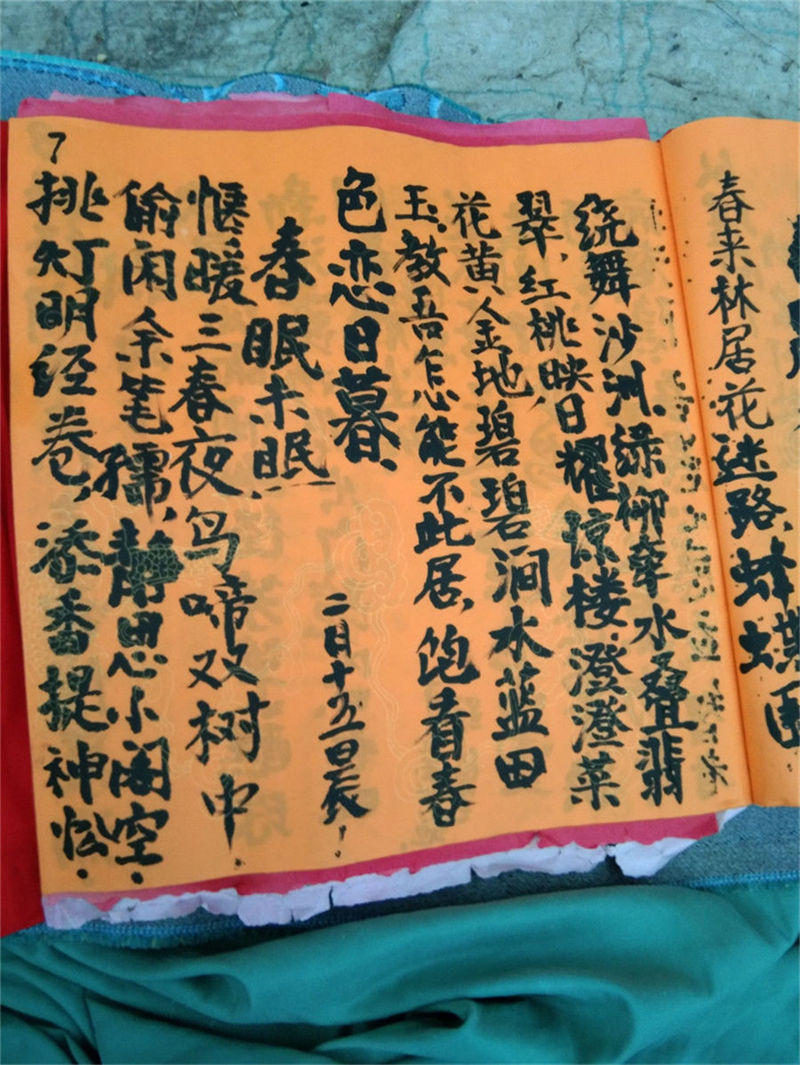 春来林居花迷路、蜂蝶围
绕舞沙洲、绿柳牵水叠翡
翠，红桃映日耀琼楼、澄澄菜
花黄金地，碧碧涧水蓝田
玉、教吾怎能不此居，饱看春
色恋日暮、
二月十五日辰！
春眠未眠
惬暖三春夜，鸟啼双树中.
偷闲余笔孺，静思小阁空.
挑灯明经卷，添香提神忪.
7